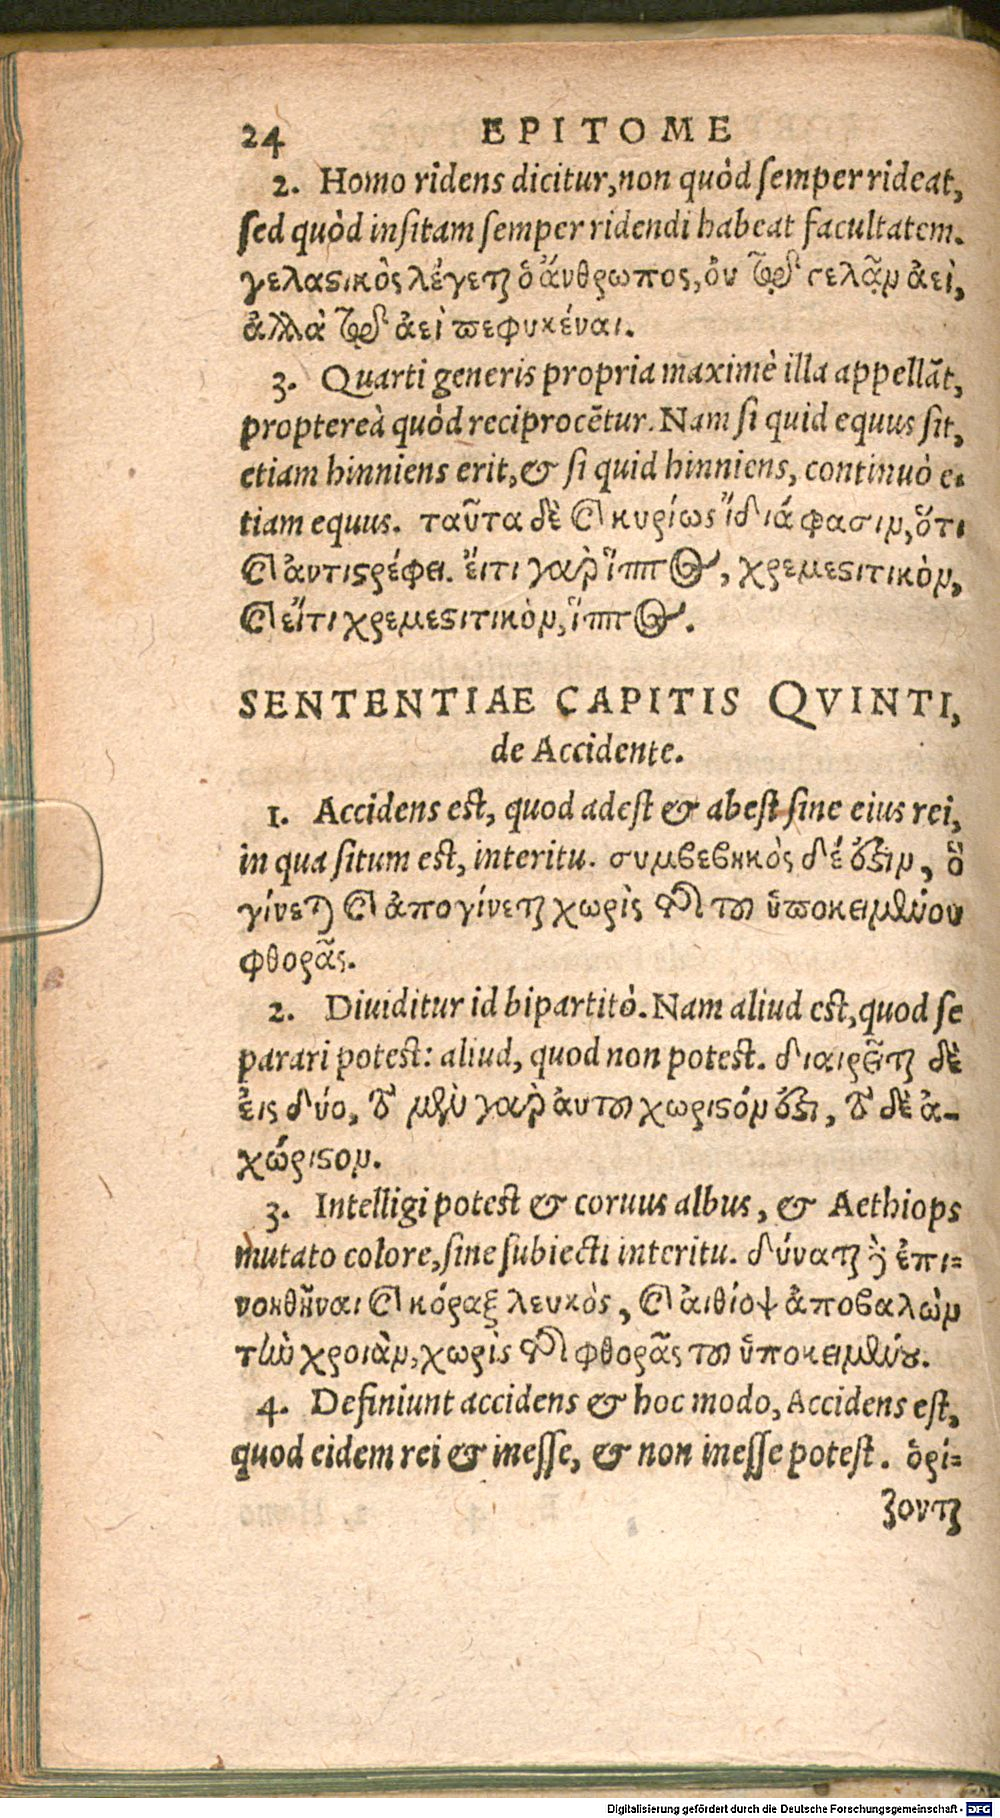 24 EPITOME
2. Homo ridens dicitur, non quòd semper rideat,
sed quòd insitam semper ridendi habeat facultatem.
γελαϛικὸς λέγεται ὁ ἄνθρωπος, ὀυ τῷ γελᾷν ἀεὶ,
ἀλλὰ τῷ ἀεὶ πεφυκέναι.
3. Quarti generis propria maximè illa appellãt,
propterea quòd reciprocẽtur. Nam si quid equus sit,
etiam hinniens erit, & si quid hinniens, continuò e-
tiam equus. ταῦτα δὲ καὶ κυρίως ἴδιά φασιν, ὅτι
καὶ ἀντιϛρέφει. ἔιτι γαρ ἵππος, χρεμεϛιτικὸν,
καὶ εἴτι χρεμεϛιτικὸν, ἵππος.
SENTENTIAE CAPITIS QVINTI,
de Accidente.
1. Accidens est, quod adest & abest sine eius rei,
in qua situm est, interitu. συμβεβηκὸς δέ ἐϛιν, ὃ
γίνεται καὶ ἀπογίνεται χωρὶς τῆς του ὑποκειμένου
φθορᾶς.
2. Diuiditur id bipartitò. Nam aliud est, quod se
parari potest: aliud, quod non potest. διαιρεῖται δὲ
ἐις δύο, τὸ μὲν γαρ ἀυτου χωριϛόν ἐϛι, τὸ δὲ ἀ-
χώριϛον.
3. Intelligi potest & coruus albus, & Aethiops
mutato colore, sine subiecti interitu. δύναται δὲ ἐπι-
νοηθῆναι καὶ κόραξ λευκὸς, καὶ ἀιθίοψ ἀποβαλὼν
τὴν χροιὰν, χωρὶς τῆς φθορᾶς του ὑποκειμένου.
4. Definiunt accidens & hoc modo, Accidens est,
quod eidem rei & inesse, & non inesse potest. ὁρί-
ζονται
Digitalisierung gefördert durch die Deutsche Forschungsgemeinschaft - DFG